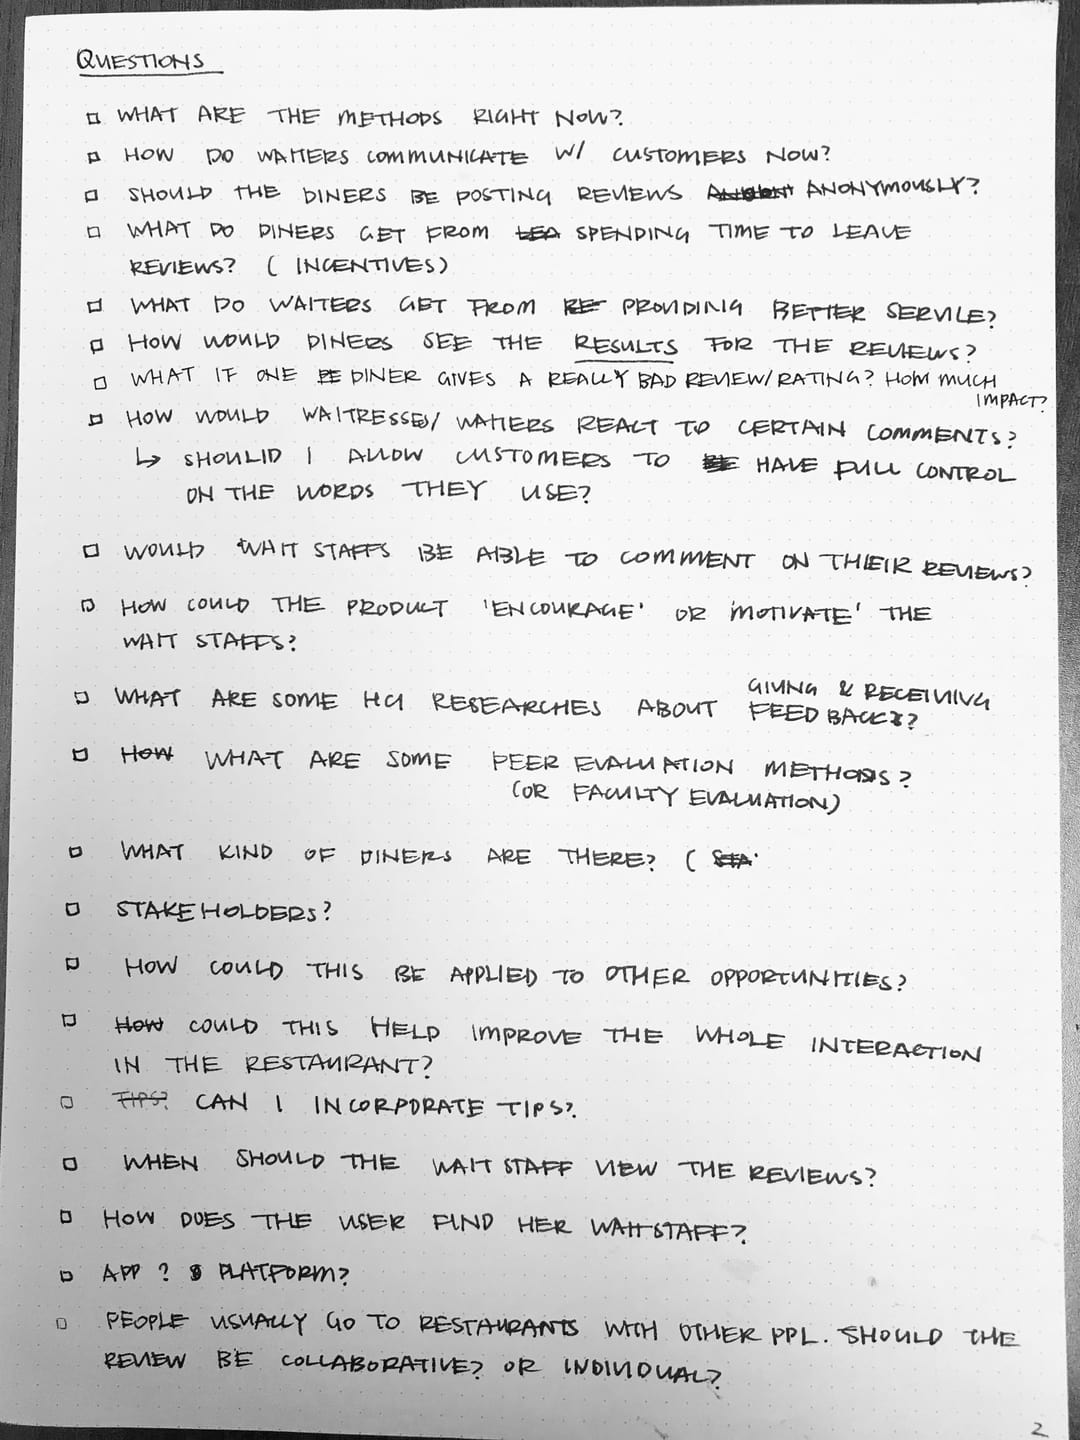 QUESTIONS
WHAT ARE THE METHODS RIGHT NOW?
HOW DO WAITERS COMMUNICATE W/ CUSTOMERS NOW?
SHOULD THE DINERS BE POSTING REVIEWS ANONYMOUSLY?
WHAT DO DINERS GET FROM LEA SPENDING TIME TO LEAVE
REVIEWS? (INCENTIVES)
WHAT DO WAITERS GET FROM RE PROVIDING BETTER SERVICE?
HOW WOULD DINERS SEE THE RESULTS FOR THE REVIEWS?
WHAT IF ONE DINER GIVES A REALLY BAD REVIEW/RATING? HOW MUCH
IMPACT?
HOW WOULD WAITRESSES/ WAITERS REACT TO CERTAIN COMMENTS?
↳ SHOULD I ALLOW CUSTOMERS TO BE HAVE FULL CONTROL
ON THE WORDS THEY USE?
WOULD WAIT STAFFS BE ABLE TO COMMENT ON THEIR REVIEWS?
HOW COULD THE PRODUCT 'ENCOURAGE' OR 'MOTIVATE' THE
WAIT STAFFS?
WHAT ARE SOME HCI RESEARCHES ABOUT GIVING & RECEIVING
FEEDBACK?
HOW WHAT ARE SOME PEER EVALUATION METHODS?
(OR FACULTY EVALUATION)
WHAT KIND OF DINERS ARE THERE? ( STA
STAKEHOLDERS?
HOW COULD THIS BE APPLIED TO OTHER OPPORTUNITIES?
HOW COULD THIS HELP IMPROVE THE WHOLE INTERACTION
IN THE RESTAURANT?
TIPS? CAN I INCORPORATE TIPS?
WHEN SHOULD THE WAIT STAFF VIEW THE REVIEWS?
HOW DOES THE USER FIND HER WAITSTAFF?
APP? PLATFORM?
PEOPLE USUALLY GO TO RESTAURANTS WITH OTHER PPL. SHOULD THE
REVIEW BE COLLABORATIVE? OR INDIVIDUAL?
2